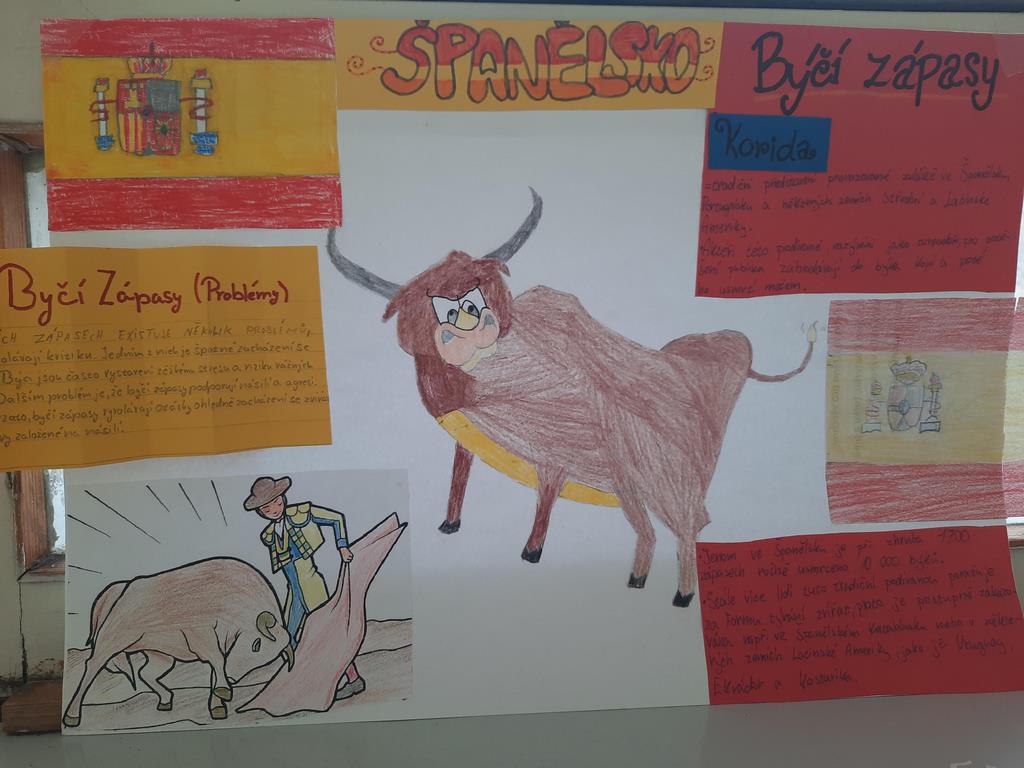 ŠPANĚLSKO
Býčí zápasy
Korida
= tradiční představení provozované zvláště ve Španělsku,
Portugalsku a některých zemích Střední a Latinské
Ameriky.
• Aktéři této podívané nazývaní jako
býka kopí a poté
ho usmrtí mečem.
Byčí Zápasy (Problémy)
ÍCH ZÁPASECH EXISTUJE NĚKOLIK PROBLÉMŮ,
olávají kritiku. Jedním z nich je špatné zacházení se
Býci jsou často vystaveni těžkém stresu a riziku vážných
Dalším problém je, že byčí zápasy podporují násilí a agresi.
zato, byčí zápasy vyvolávají otázky ohledně zacházení se zvířa
vy založené na násilí.
• Jenom ve Španělsku je při zhruba 1700
zápasech ročně usmrceno 10 000 býků.
• Stále více lidí tuto tradiční podívanou považuje
za formu týrání zvířat, proto je postupně zakazo-
vána např. ve Španělském Katalánsku nebo v někte-
rých zemích Latinské Ameriky, jako je Uruguay,
Ekvádor a Kostarika.